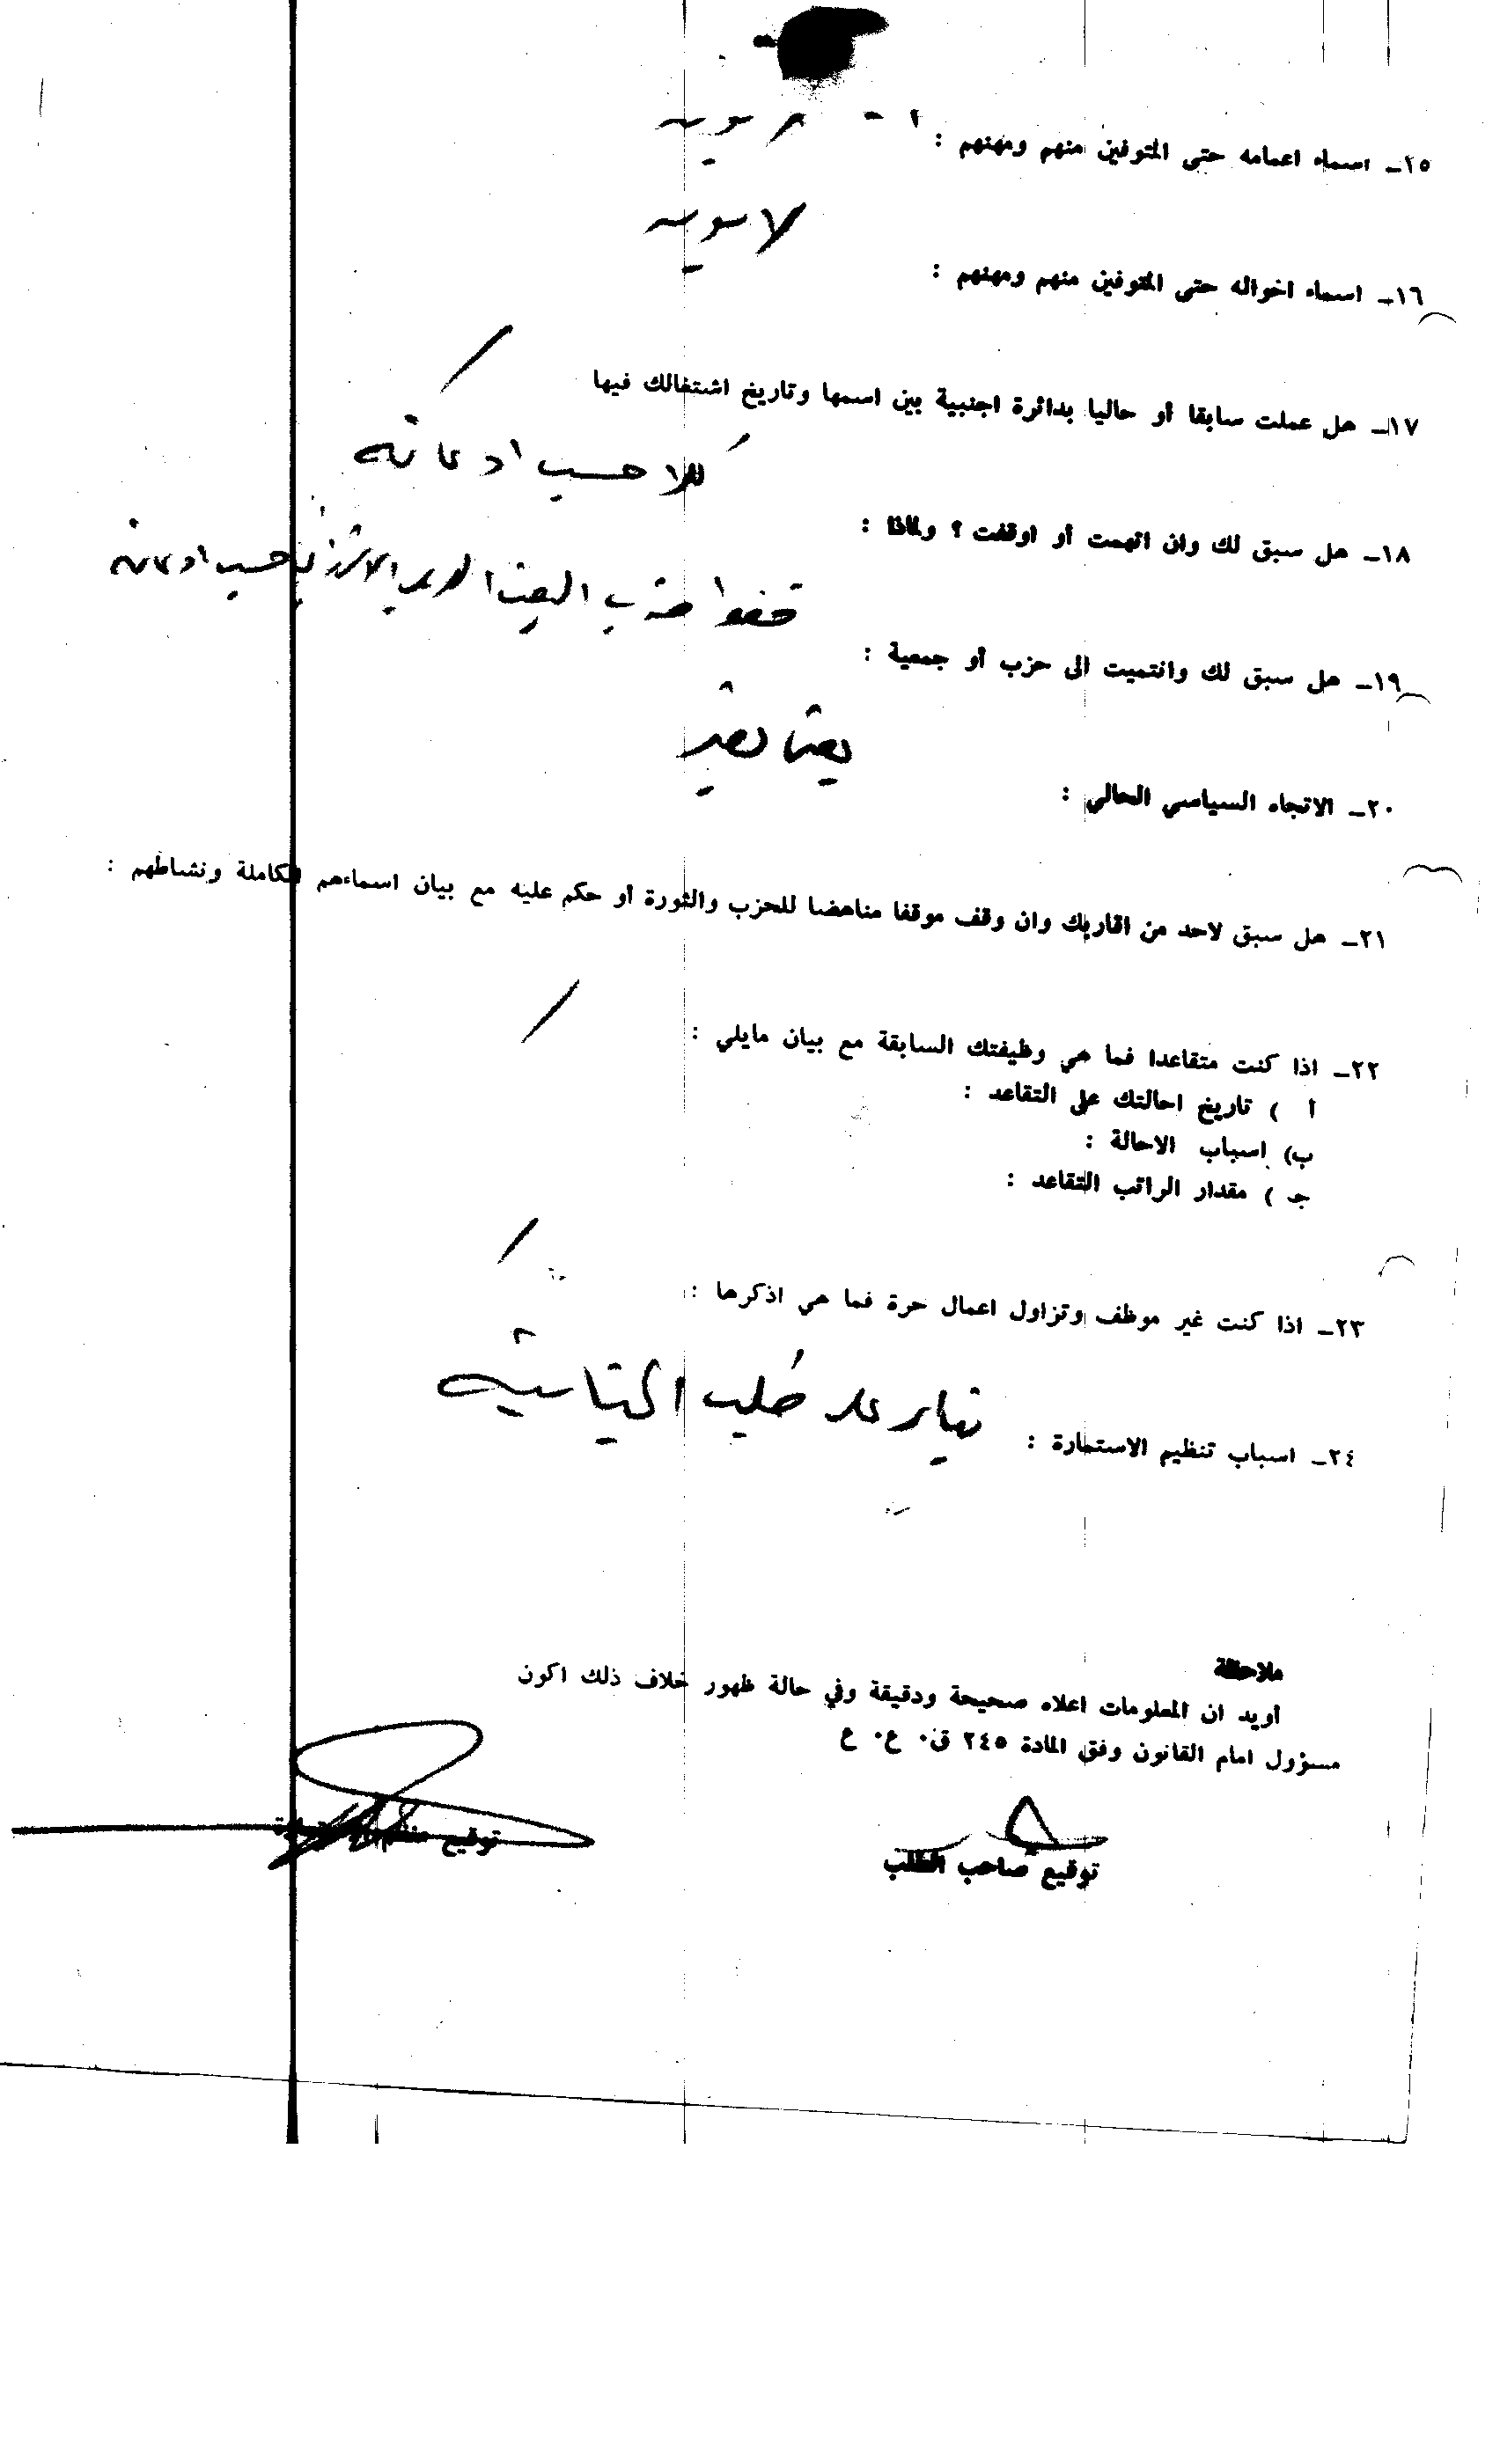 ١٥ـ اسماء اعمامه حتى المتوفين منهم ومهنهم :
لا يوجد
١٦ـ اسماء اخواله حتى المتوفين منهم ومهنهم :
١٧ـ هل عملت سابقا أو حاليا بدائرة اجنبية بين اسمها وتاريخ اشتغالك فيها
كلا حسب ادعائه
١٨ـ هل سبق لك وان اتهمت أو اوقفت ؟ ولماذا :
حزب البعث العربي الاشتراكي حسب ادعائه
١٩ـ هل سبق لك وانتميت الى حزب أو جمعية :
٢٠ـ الاتجاه السياسي الحالي :
٢١ـ هل سبق لاحد من اقاربك وان وقف موقفا مناهضا للحزب والثورة أو حكم عليه مع بيان اسماءهم الكاملة ونشاطهم :
٢٢ـ اذا كنت متقاعدا فما هي وظيفتك السابقة مع بيان مايلي :
أ ) تاريخ احالتك على التقاعد :
ب) اسباب الاحالة :
جـ ) مقدار الراتب التقاعد :
٢٣ـ اذا كنت غير موظف وتزاول اعمال حرة فما هي اذكرها :
على طلب
٢٤ـ اسباب تنظيم الاستمارة :
ملاحظة
أويد ان المعلومات اعلاه صحيحة ودقيقة وفي حالة ظهور خلاف ذلك اكون
مسؤول امام القانون وفق المادة ٢٤٥ ق٠ ع٠ ع
توقيع صاحب الطلب
توقيع منظم الاستمارة